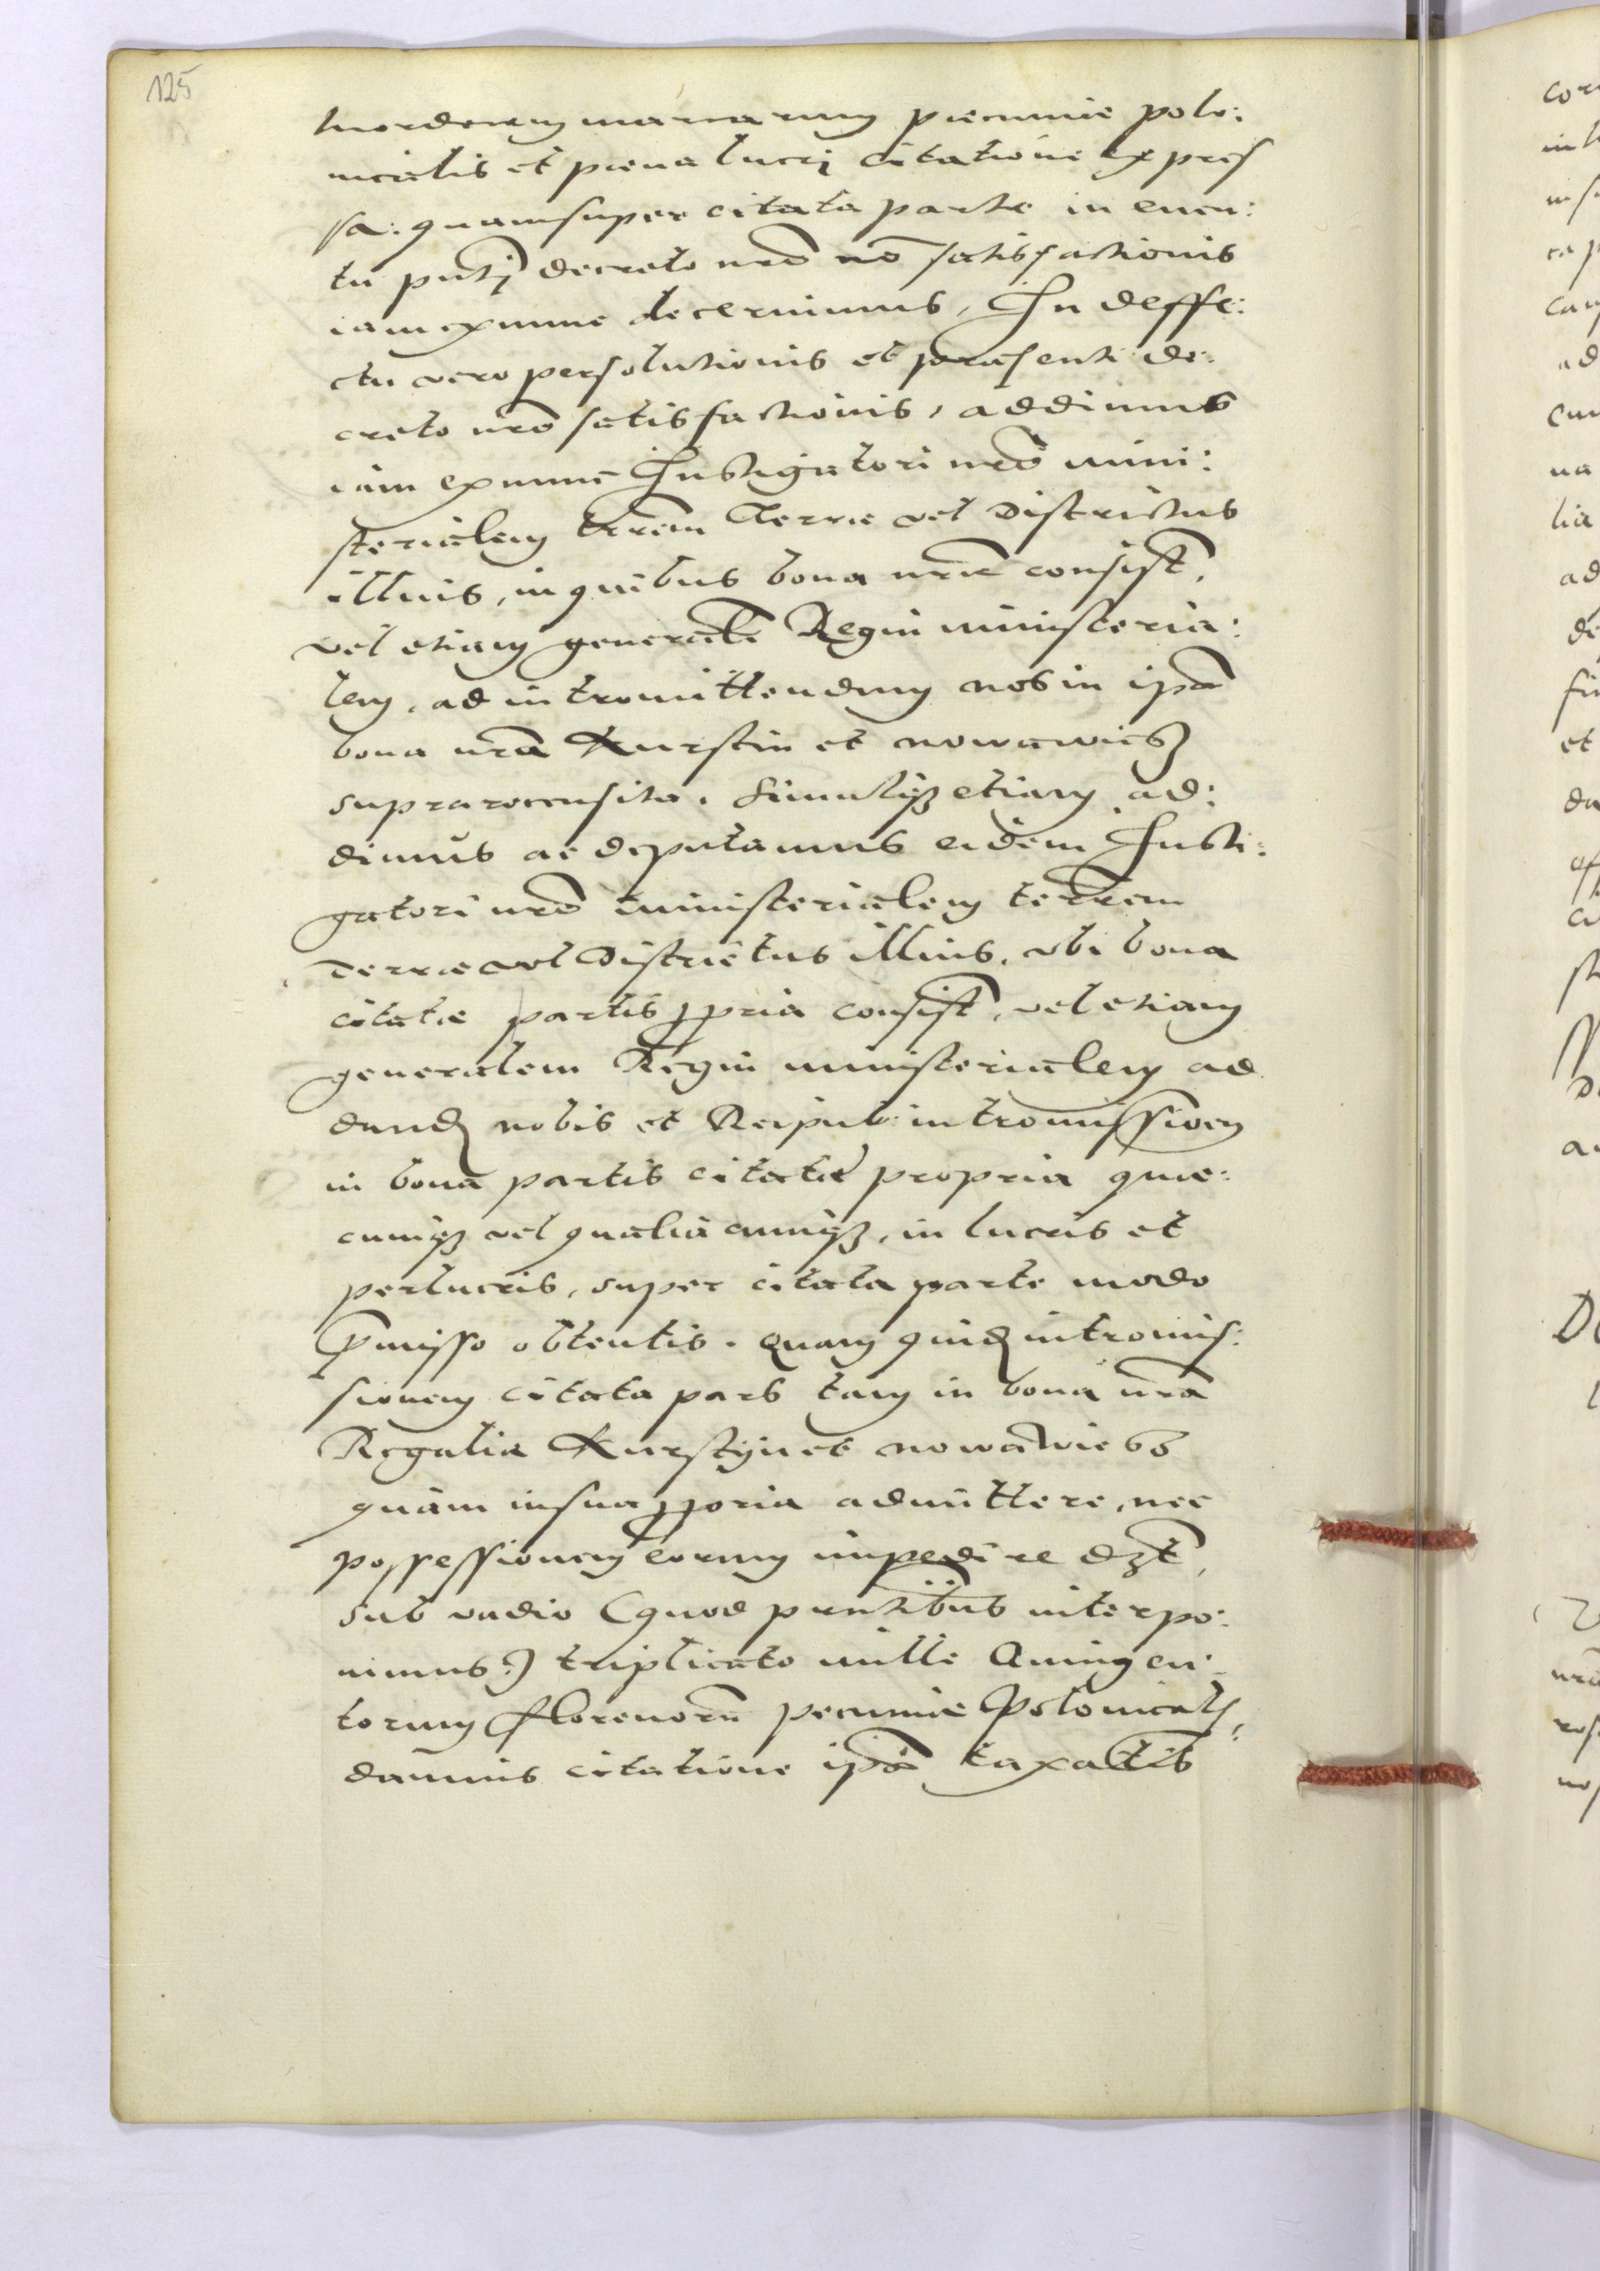 125
tuordecem marcarum pecuniae polo:
nicalis et poena lucri citatione expres
sa: quam super citata parte in euen:
tu pntj decreto nrō nō satisfactionis
iam ex nunc decernimus, In deffe:
ctu vero persolutionis et praesenti de:
creto nrō satisfactionis, addimus
iam ex nunc Instigatori nrō mini:
sterialem trrem Terrae vel Districtus
illius, in quibus bona nrae consist,
vel etiam generale Regni ministeria:
lem, ad intromittendum nos in ipā
bona nrā Kurstin et nowawiesz
suprarecensita. Simulqz etiam ad:
dimus ac deputamus eidem Insti:
gatori nrō ministerialem terrem
Terrae vel Districtus illius, vbi bona
citatae partis ppria consist, vel etiam
generalem Regni ministerialem ad
dand nobis et Reipub: intromissionem
in bona partis citatae propria quae:
cumqz vel qualiacumqz, in lucris et
perlucris, super citata parte modo
pmisso obtentis. Quam quid intromis:
sionem citata pars tam in bona nrā
Regalia Kurstyn et nowawiess
quam in sua ppria admittere, nec
possessionem eorum impedire dzt,
sub vadio (quod pntibus interpo:
nimus) triplicato mille Quingen:
torum florenorū pecuniae Polonicals,
damnis citatione ipā taxatis
cor
in
ad
cum
na
lia
ad
de
et